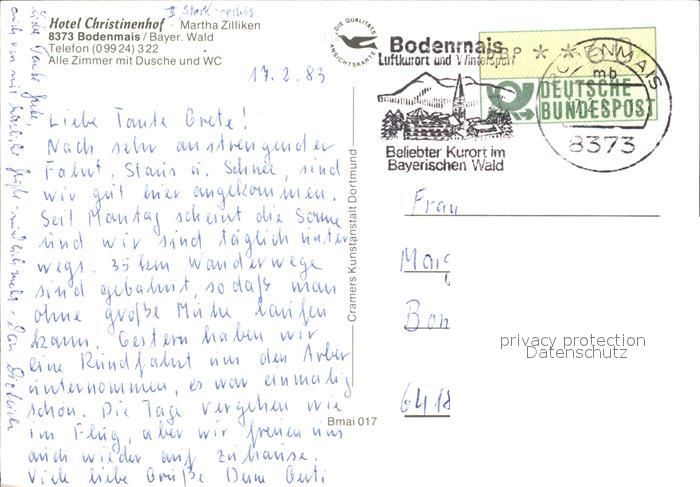 II Stock rechts
Hotel Christinenhof - Martha Zilliken
8373 Bodenmais / Bayer. Wald
Telefon (09924) 322
Alle Zimmer mit Dusche und WC
DIE QUALITÄTS
ANSICHTSKARTE
Bodenmais
Luftkurort und Wintersport
Beliebter Kurort im
Bayerischen Wald
DBP
DEUTSCHE
BUNDESPOST
BODENMAIS
mb
8373
17.2.83
Liebe Tante Grete!
Nach sehr anstrengender
Fahrt, Staus u. Schnee, sind
wir gut hier angekommen.
Seit Montag scheint die Sonne
und wir sind täglich unter
wegs. 35 km Wanderwege
sind gebahnt, sodaß man
ohne große Mühe laufen
kann. Gestern haben wir
eine Rundfahrt um den Arber
unternommen, es war einmalig
schön. Die Tage vergehen wie
im Flug, aber wir freuen uns
auch wieder auf zuhause.
Viele liebe Grüße Deine Gerti
Liebe Tante Grete,
auch von mir herzliche Grüße
Cramers Kunstanstalt Dortmund
Bmai 017
Frau
privacy protection
Datenschutz